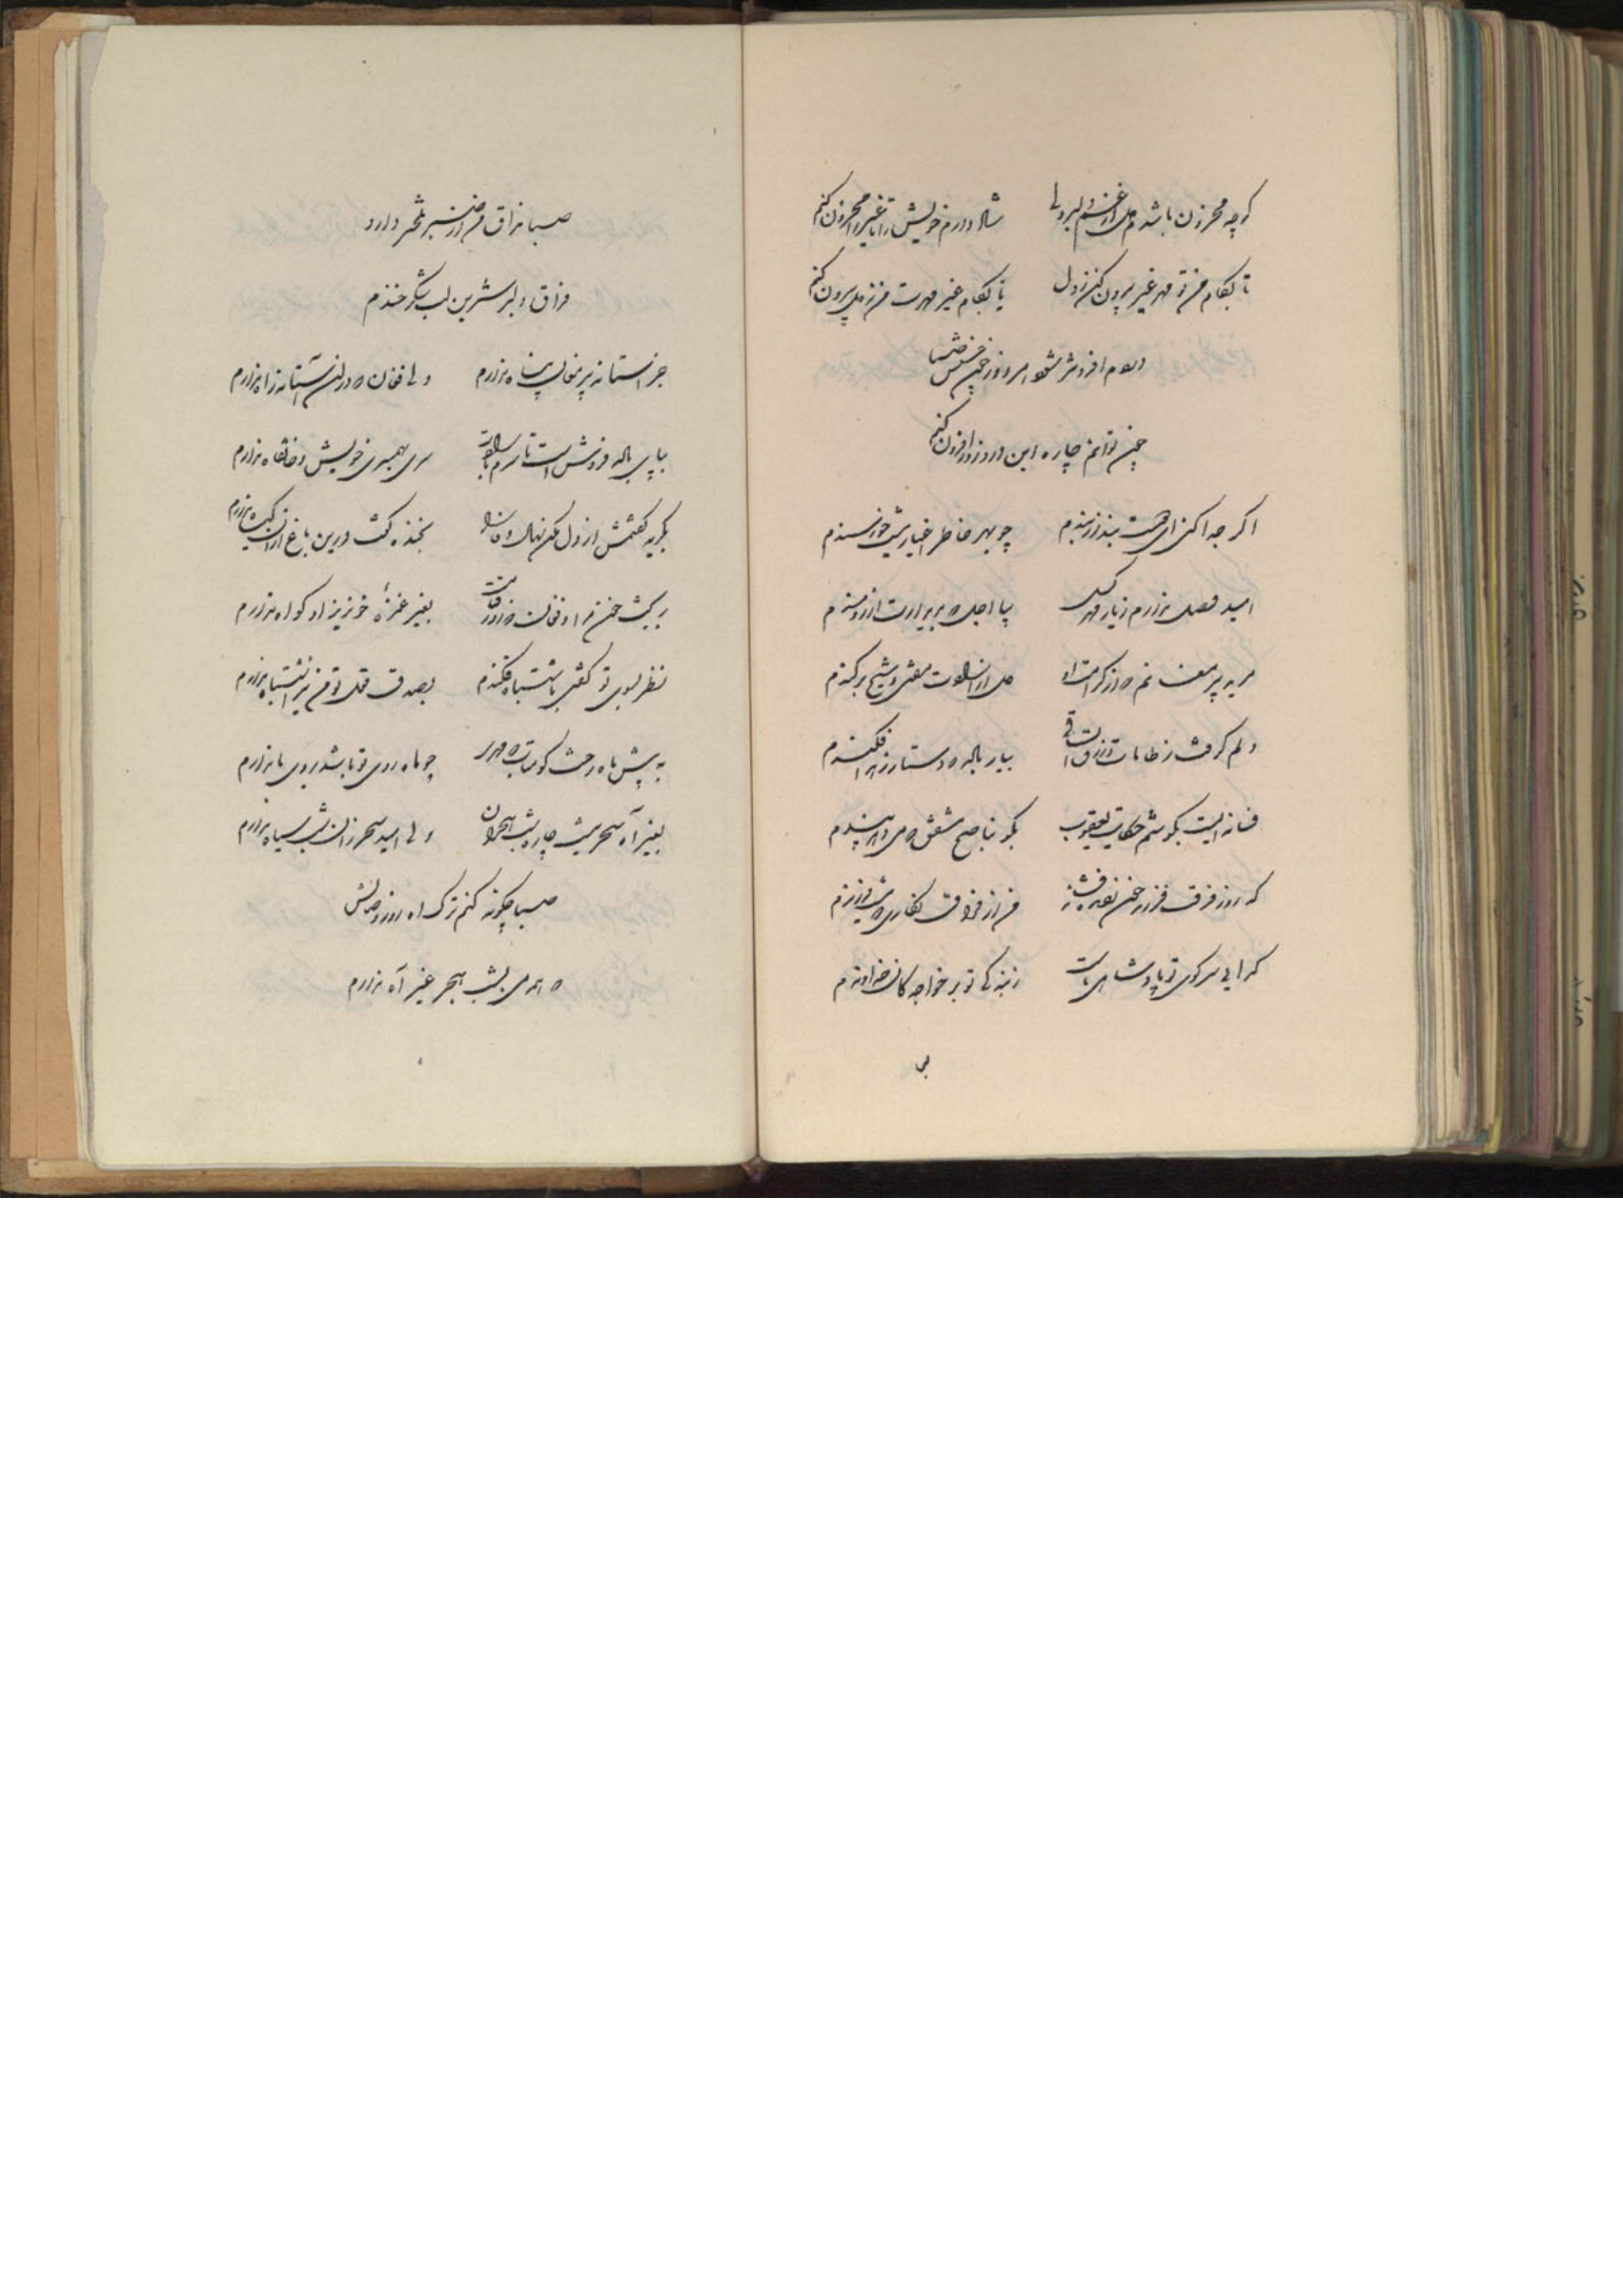 گرچه محزون باشدم دل از غم دلبر ولی شاد دارم خویش را تا غیر را محزون کنم
تا بکام من تو مهر غیر بیرون کن ز دل یا بکام غیر مهرت من ز دل بیرون کنم
دردم افزونتر شود امروز
چون توانم چاره این درد روز افزون کنم
اگر جدا کنی ای بند از بندم چو بهر خاطر اغیار تست خورسندم
امید وصل ندارم ز یار بیا اجل که بریدارت آرزومندم
مرید پیر مغانم که از کرامت او دل از ارادت مفتی و شیخ برکندم
دلم گرفت ز طامات بیار باده که دستار زهد افکندم
فسانه ایست بگوشم حکایت یعقوب بگو بناصح مشفق که می‌دهد پندم
که روز فرقت فرزند من از فراق نگاری که نیست فرزندم
گدایی سر کوی تو پادشاهی ماست ز بندگی تو بر خواجگان خداوندم
صبا مذاق من از صبر تلخ دارد
فراق دلبر شیرین لب شکر خندم
جز آستانه پیر مغان پناه ندارم ولی فغان که در آن آستانه راه ندارم
بپای باده فروش است تا سرم سر همسری خویش و خانقاه ندارم
بگریه گفتمش از دل مکن نهال وفا را بخنده گفت درین باغ ازین گیاه ندارم
بریخت خون مرا و فغان که بغیر غمزهٔ خونریز او گواه ندارم
نظر بسوی تو گفتی باشتباه فکندم بصدق قول تو من نیز اشتباه ندارم
به پیش ماه رخت گو متاب چو ماه روی تو باشد بروی ماه ندارم
بغیر آه سحر نیست چاره شب هجران ولی امید سحر زان شب سیاه ندارم
صبا چگونه کنم ترک آه روز وصالش
که همدمی بشب هجر غیر آه ندارم